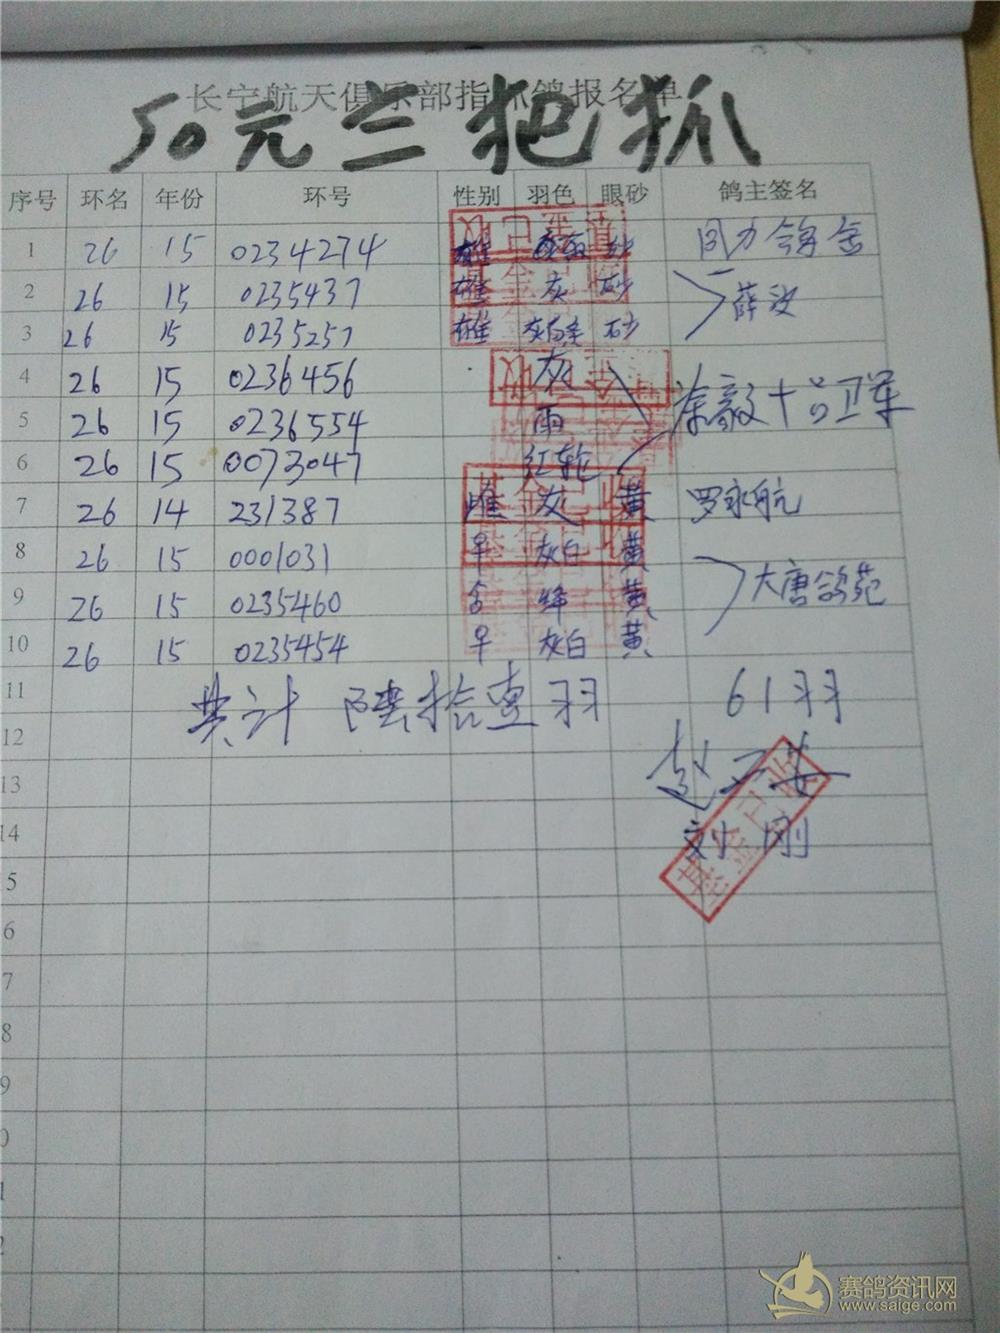 长宁航天俱乐部指抓鸽报名单
50元兰把抓
序号 环名 年份 环号 性别 羽色 眼砂 鸽主签名
1 26 15 0234274 雄 砂
2 26 15 0235437 雄 灰 砂 薛汝
3 26 15 0235257 雄 砂
4 26 15 0236456 灰
5 26 15 0236554 雨 涂毅
6 26 15 0073047 红轮
7 26 14 231387 雌 灰 黄 罗永航
8 26 15 0001031 灰白 黄
9 26 15 0235460 绛 黄 大唐鸽苑
10 26 15 0235454 灰白 黄
11 共计 陆拾壹羽 61羽
12
13
14 刘刚
基金已收
5
6
7
8
9
0
1
2
赛鸽资讯网
www.saige.com